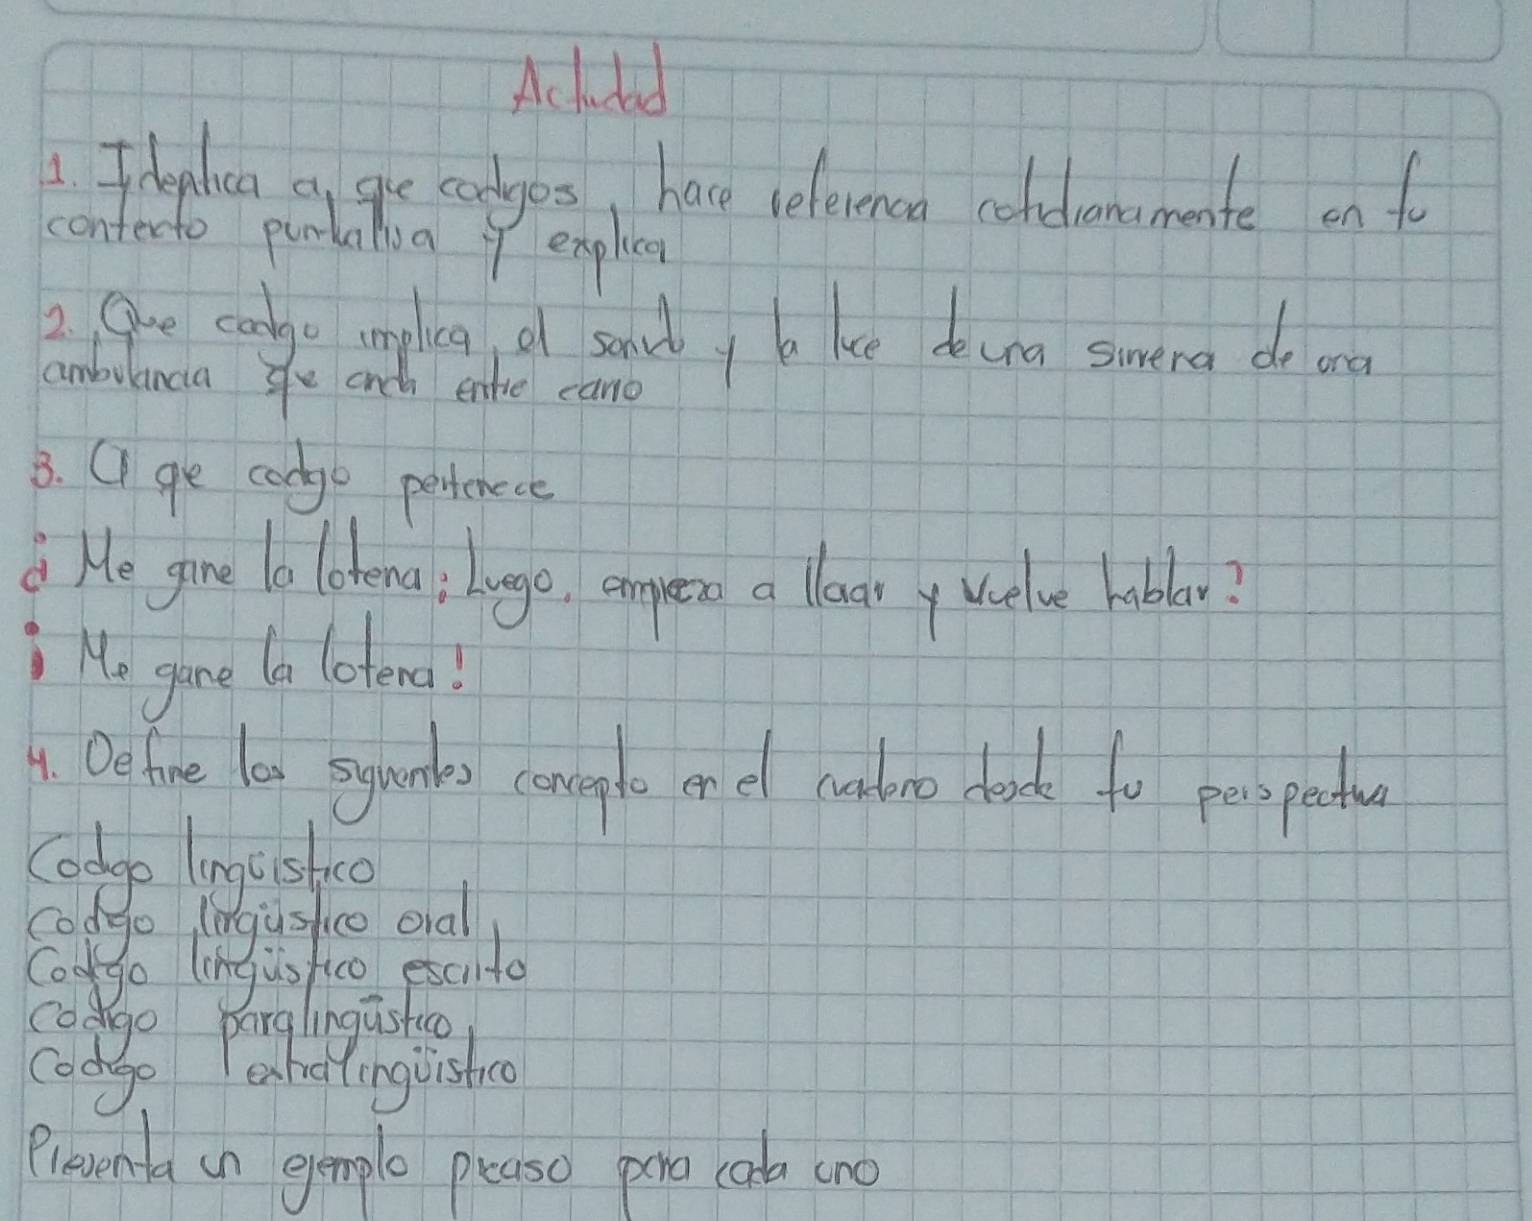 Actividad
1. Identifica a que codigos, hace referencia cotidianamente en tu
contexto puntualiza y explica
2. Que codigo implica, el sonido y la luce de una sirena de una
ambulancia que anda entre carro
3. A qe codigo pertenece
¿ Me gane la loteria; Luego, empieza a llorar y vuelve hablar?
¡ Me gane la loteria!
4. Define los siguientes concepto en el cuaderno desde tu perspectiva
Codigo lingüistico
codigo lingüistico oral
Codigo lingüistico escrito
codigo paralingüistico
Codigo extralingüistico
Presenta un ejemplo preciso para cada uno